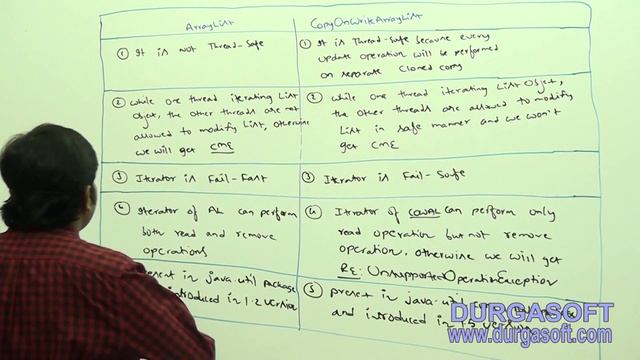 ArrayList
① It is not Thread-Safe
② while one thread iterating List
Object, the other threads are not
allowed to modify List, otherwise
we will get CME
③ Iterator is Fail-Fast
④ Iterator of AL can perform
both read and remove
operations
present in java.util package
introduced in 1.2 version
CopyOnWriteArrayList
① It is Thread-Safe because every
update operation will be performed
on separate cloned copy
② while one thread iterating List Object,
the other threads are allowed to modify
List in safe manner and we won't
get CME
③ Iterator is Fail-Safe
④ Iterator of COWAL can perform only
read operation but not remove
operation, otherwise we will get
RE: UnsupportedOperationException
⑤ present in java.util
and introduced in 1.5 version
DURGASOFT
www.durgasoft.com